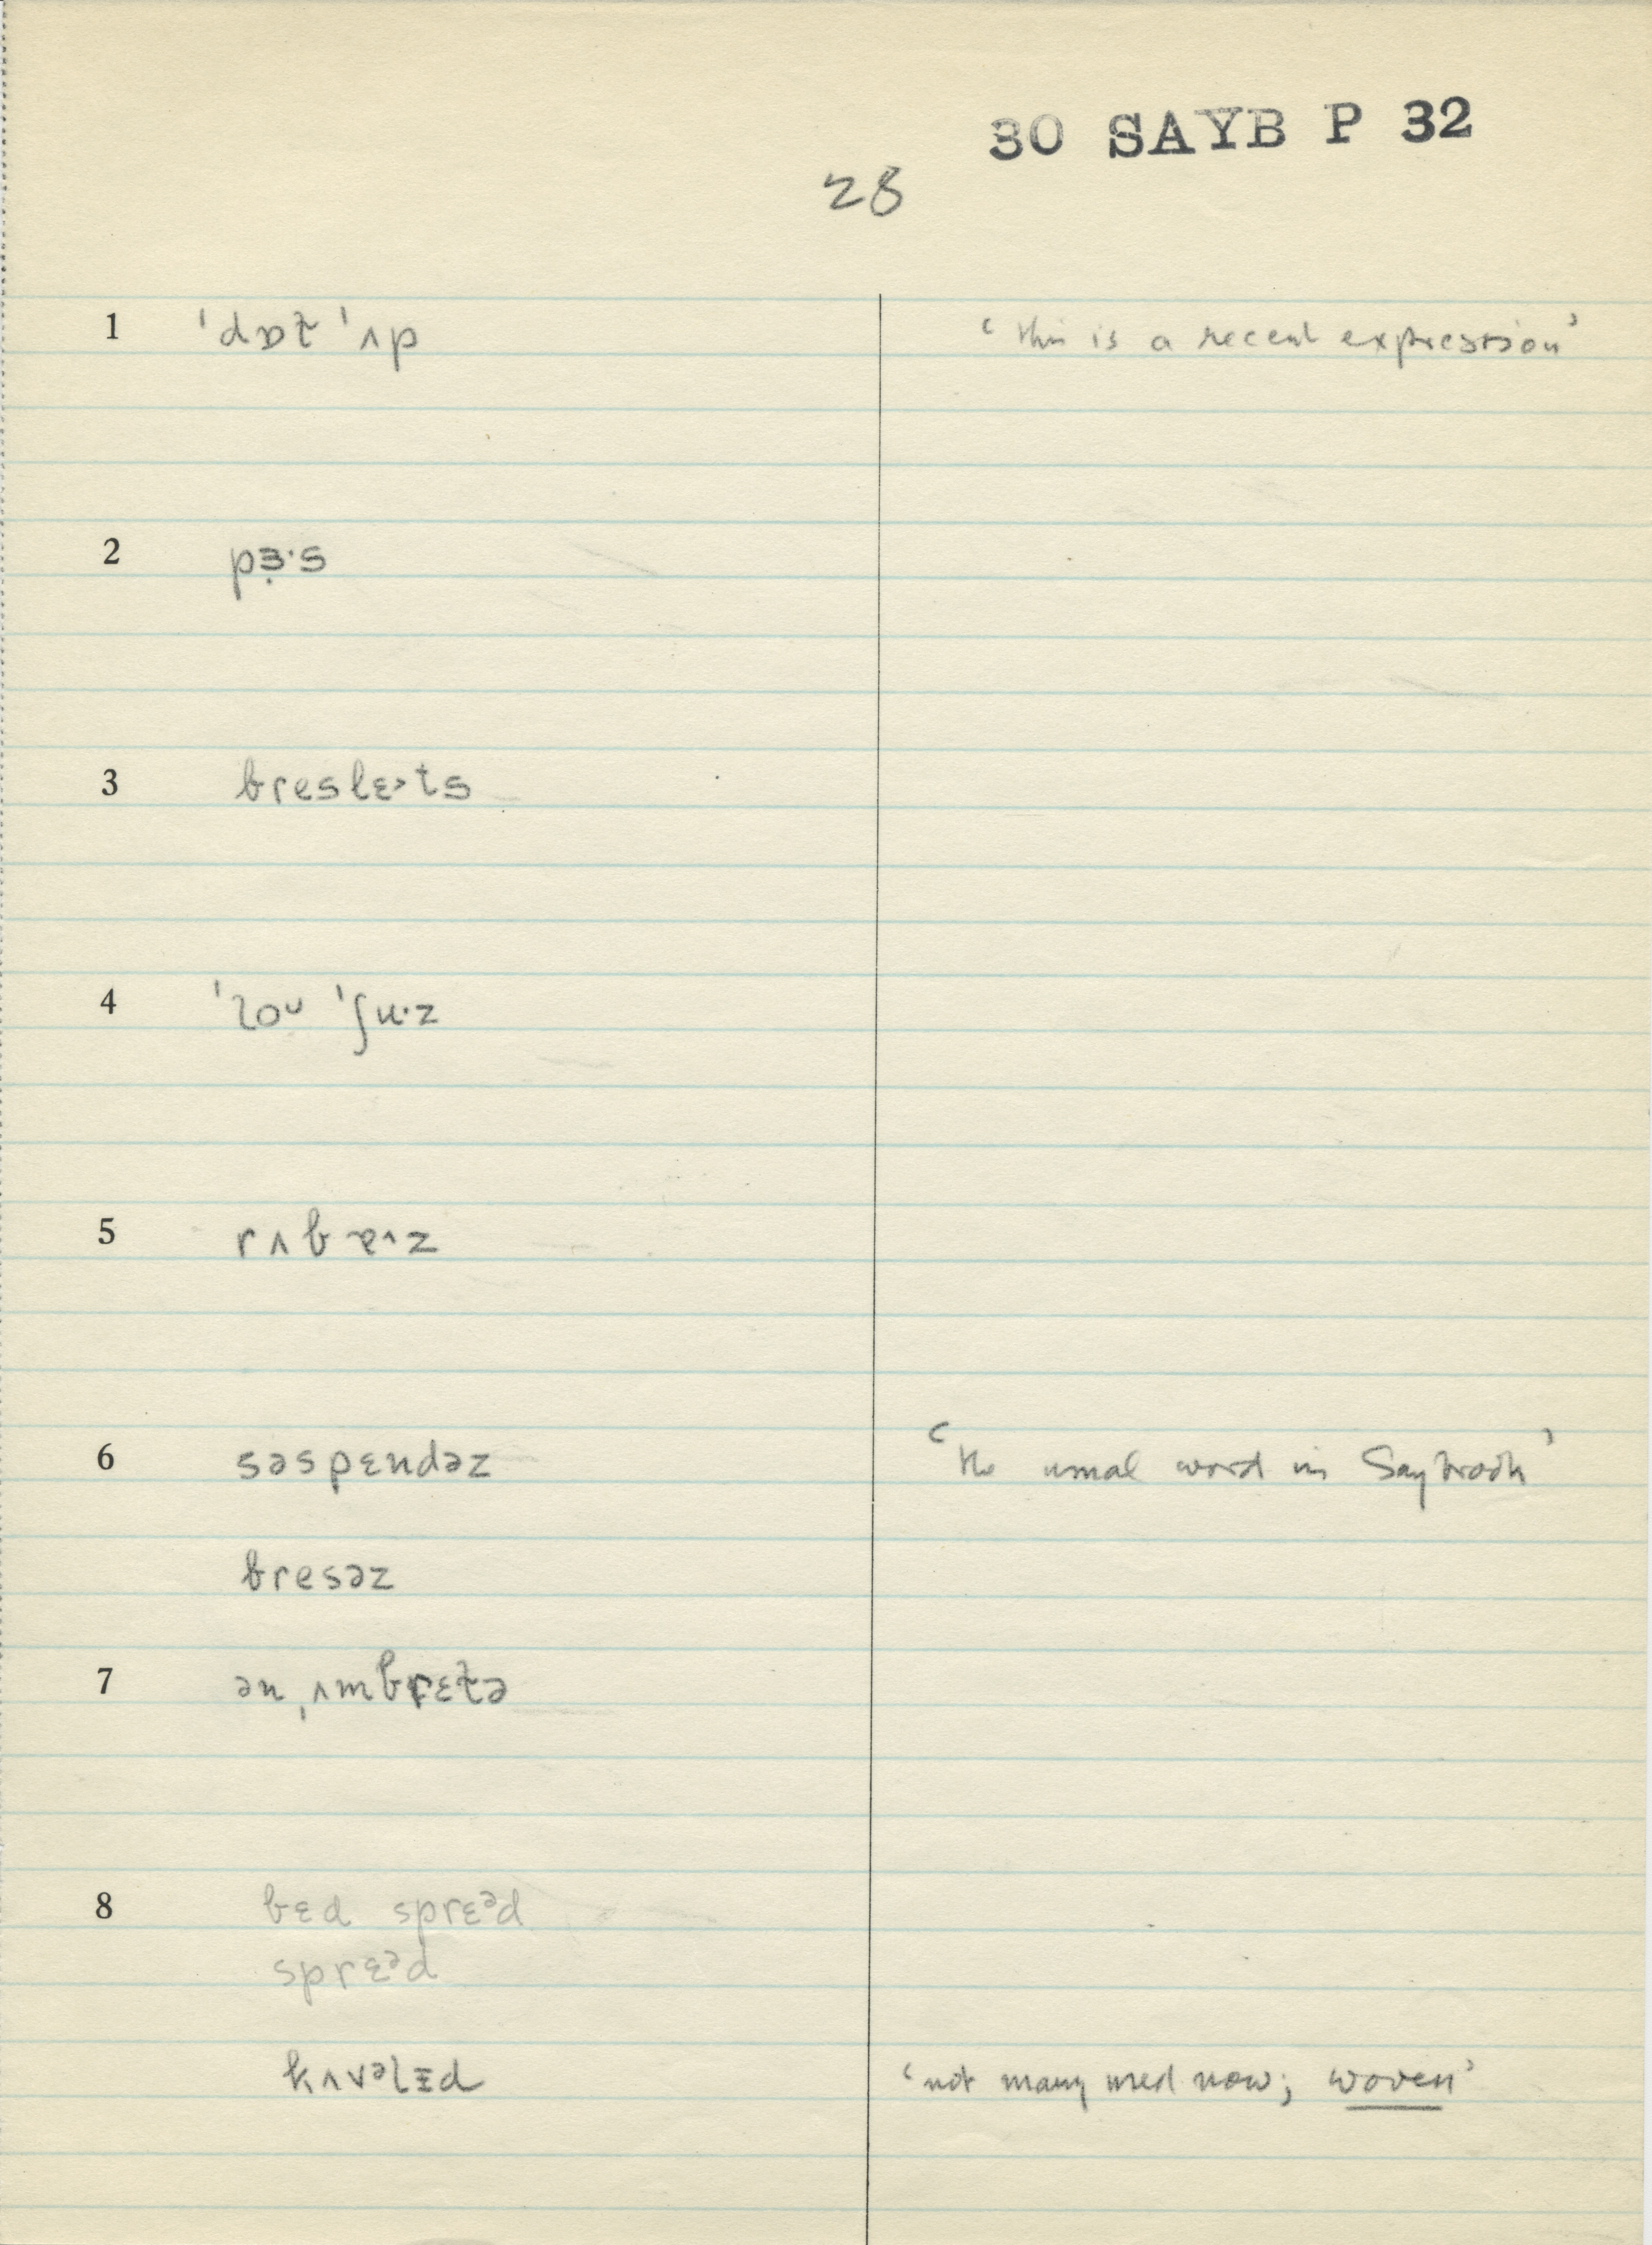 30 SAYB P 32
28
1 ˈdɒt̬ ˈʌp ‘this is a recent expression’
2 pɜ̣·s
3 bresle˃ts
4 ˈloᴜ ˈʃu·z
5 rʌbɐ^z
6 səspɛndəz ‘the usual word in Saybrook’
bresəz
7 ən ˌʌmbrɛt̬ə
8 bɛd sprɛᵊd
sprɛᵊd
kʌvəlɪd ‘not many used now; woven’